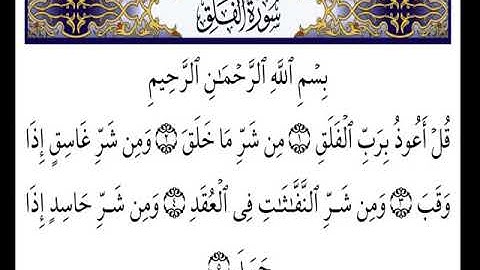 سُورَةُ الفَلَقِ
بِسْمِ ٱللَّهِ ٱلرَّحْمَـٰنِ ٱلرَّحِيمِ
قُلْ أَعُوذُ بِرَبِّ ٱلْفَلَقِ ۝١ مِن شَرِّ مَا خَلَقَ ۝٢ وَمِن شَرِّ غَاسِقٍ إِذَا
وَقَبَ ۝٣ وَمِن شَرِّ ٱلنَّفَّـٰثَـٰتِ فِى ٱلْعُقَدِ ۝٤ وَمِن شَرِّ حَاسِدٍ إِذَا
حَسَدَ ۝٥